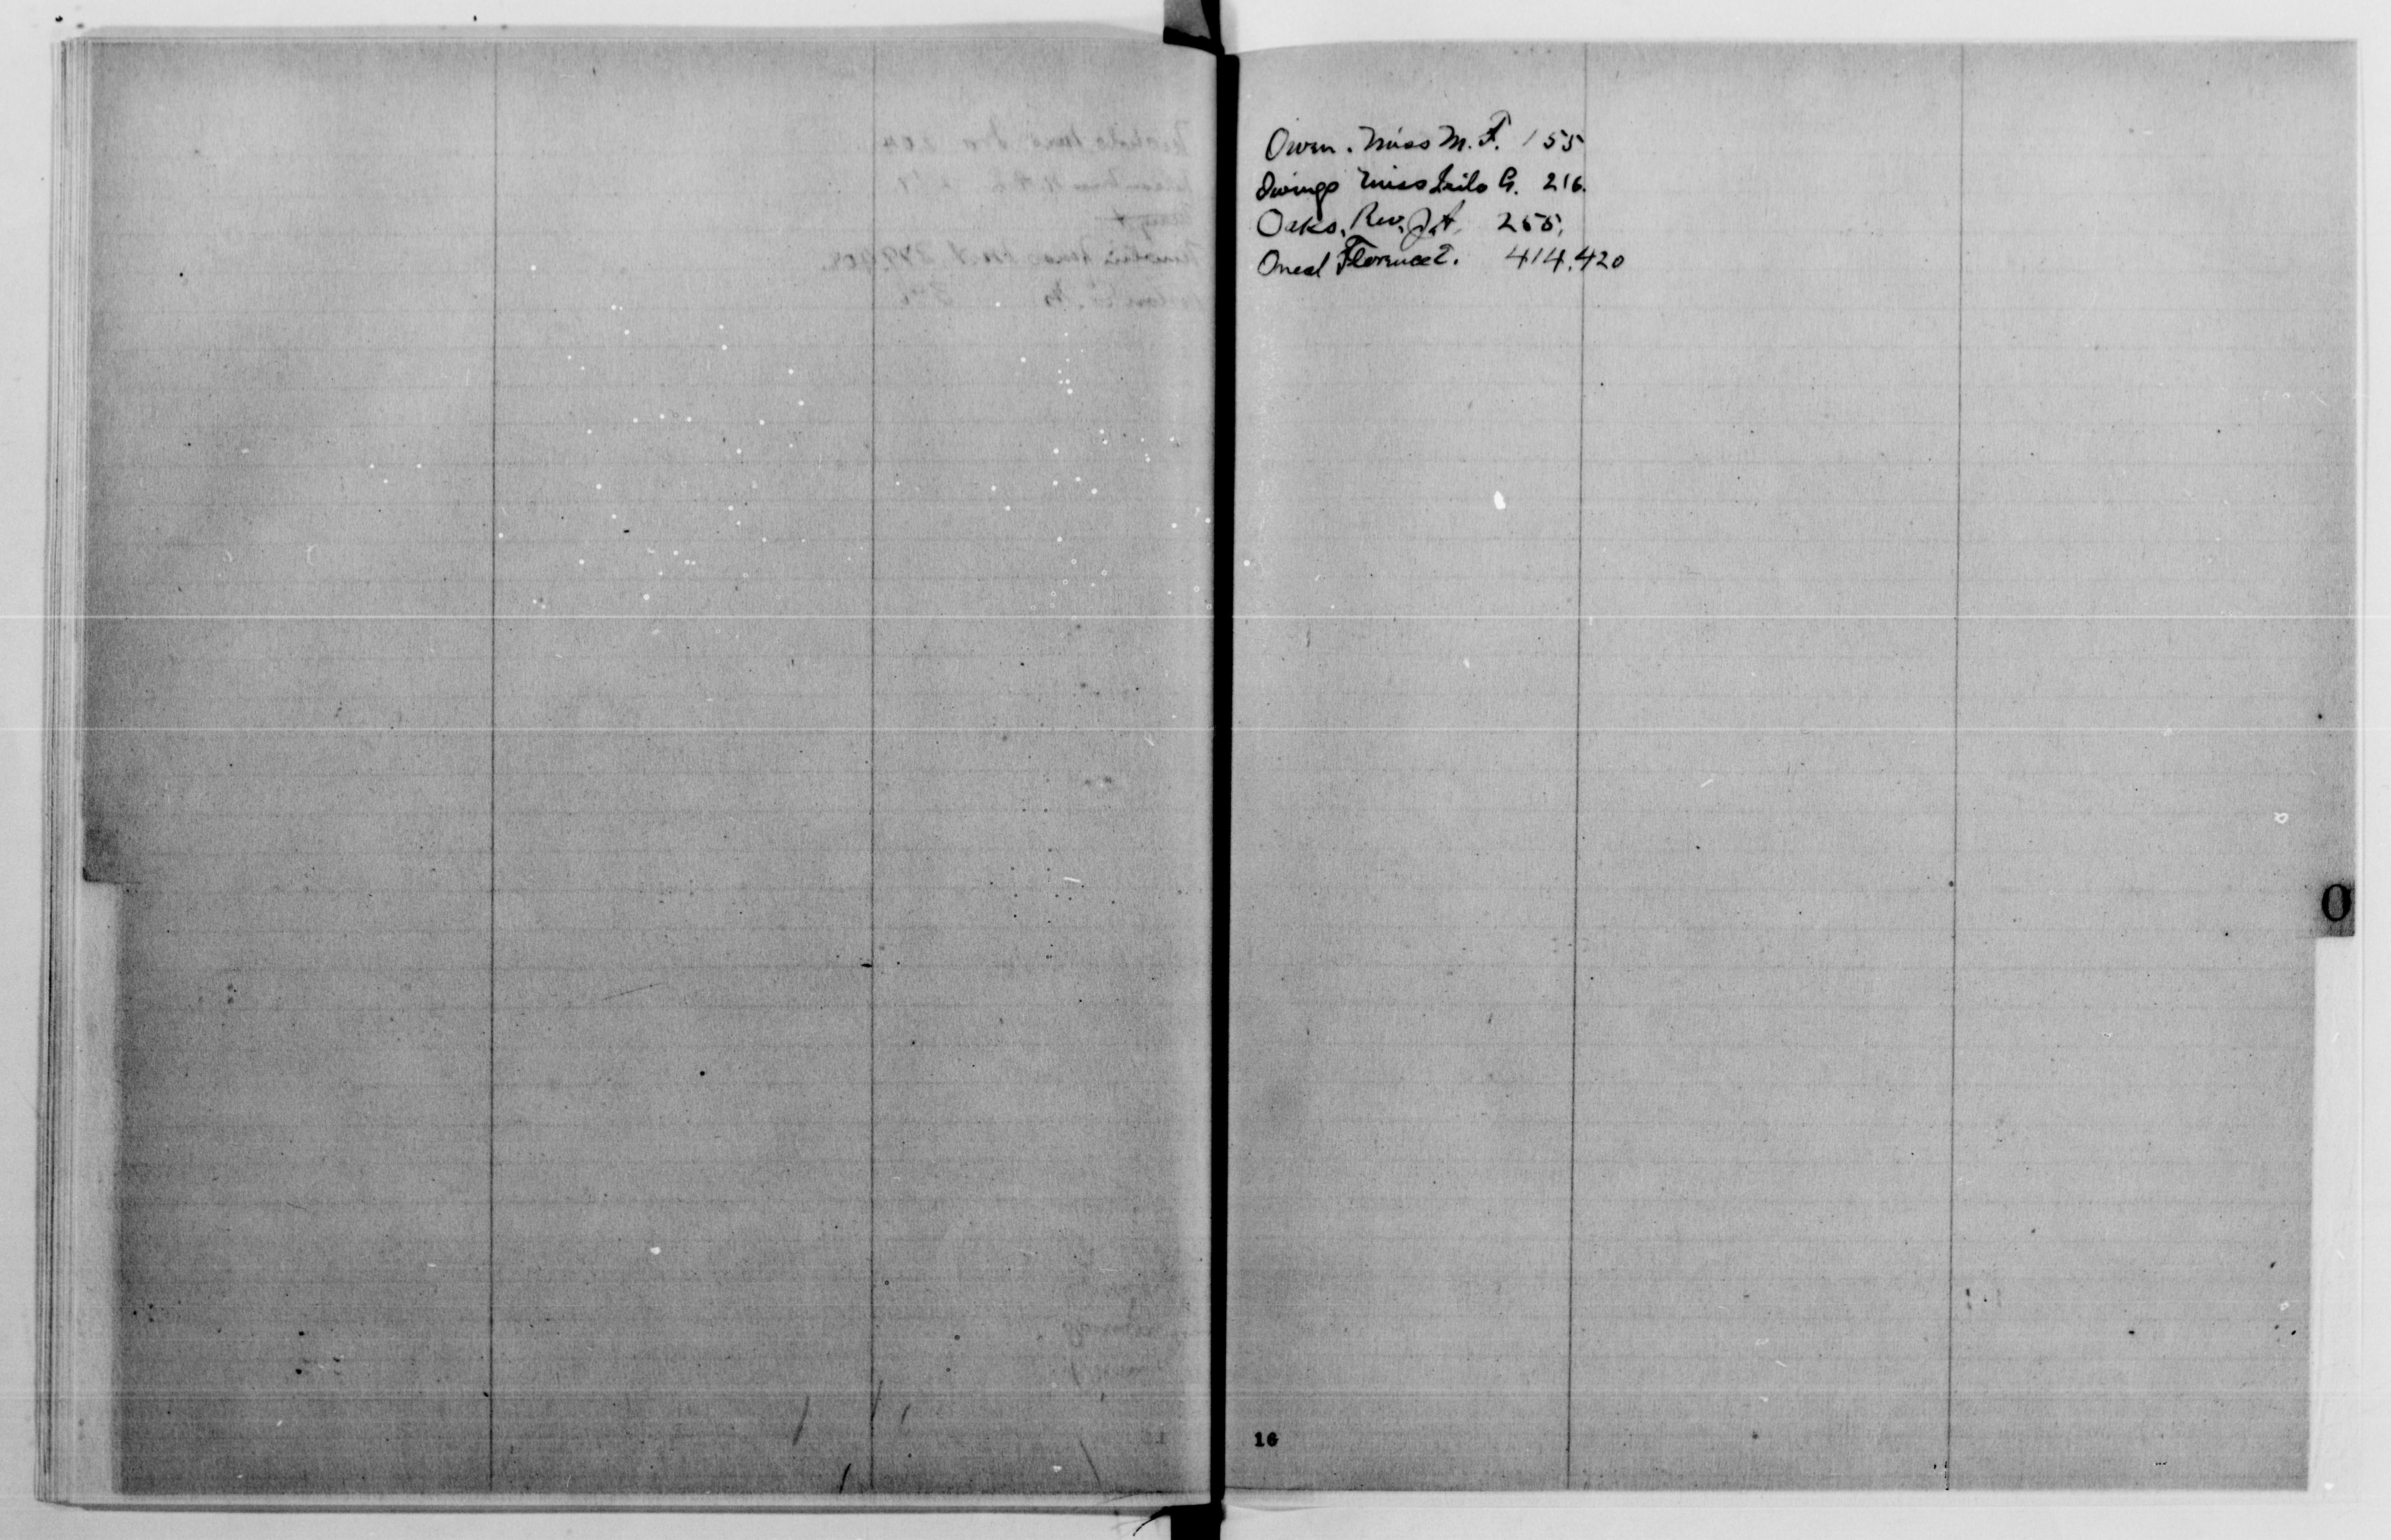 Owen. Miss M. F. 155
Miss Leila G. 216.
Oaks, Rev. J. A. 255,
Oneal Florence T. 414.420
O
16